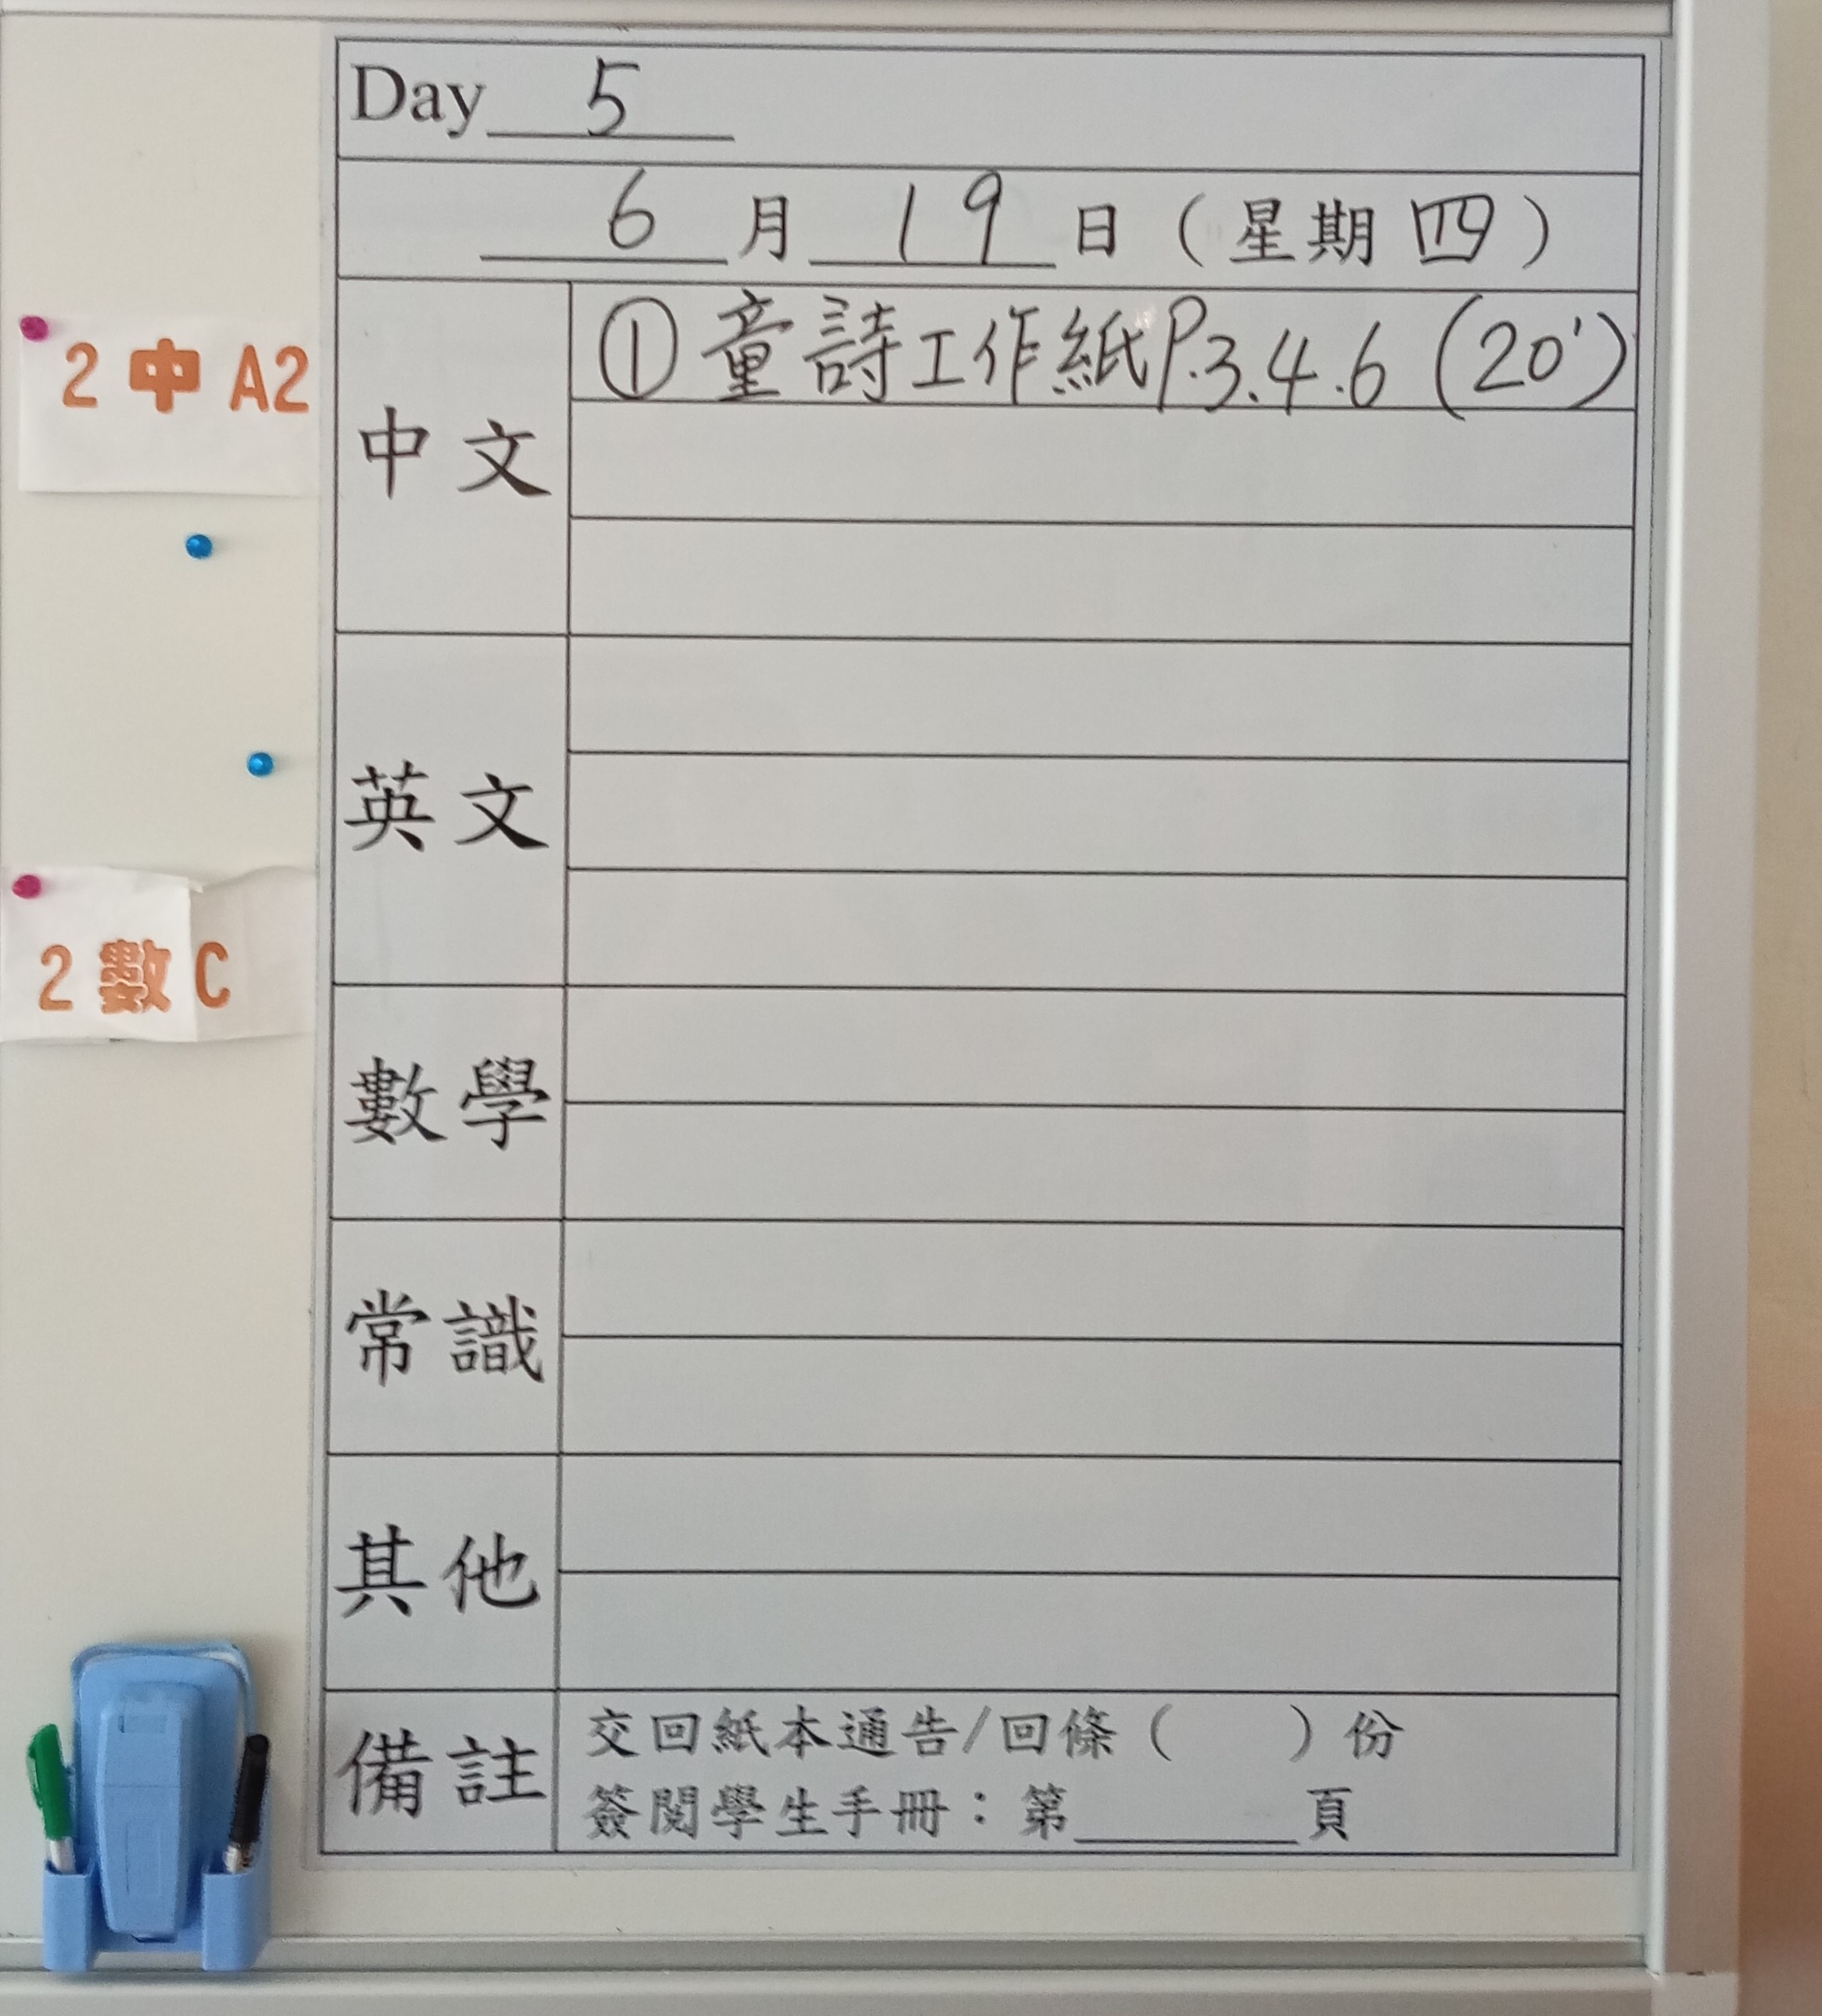 Day 5
6 月 19 日 (星期四)
2 中 A2
中文
① 童詩工作紙P.3.4.6 (20')
英文
2 數 C
數學
常識
其他
備註
交回紙本通告/回條 ( ) 份
簽閱學生手冊：第______頁